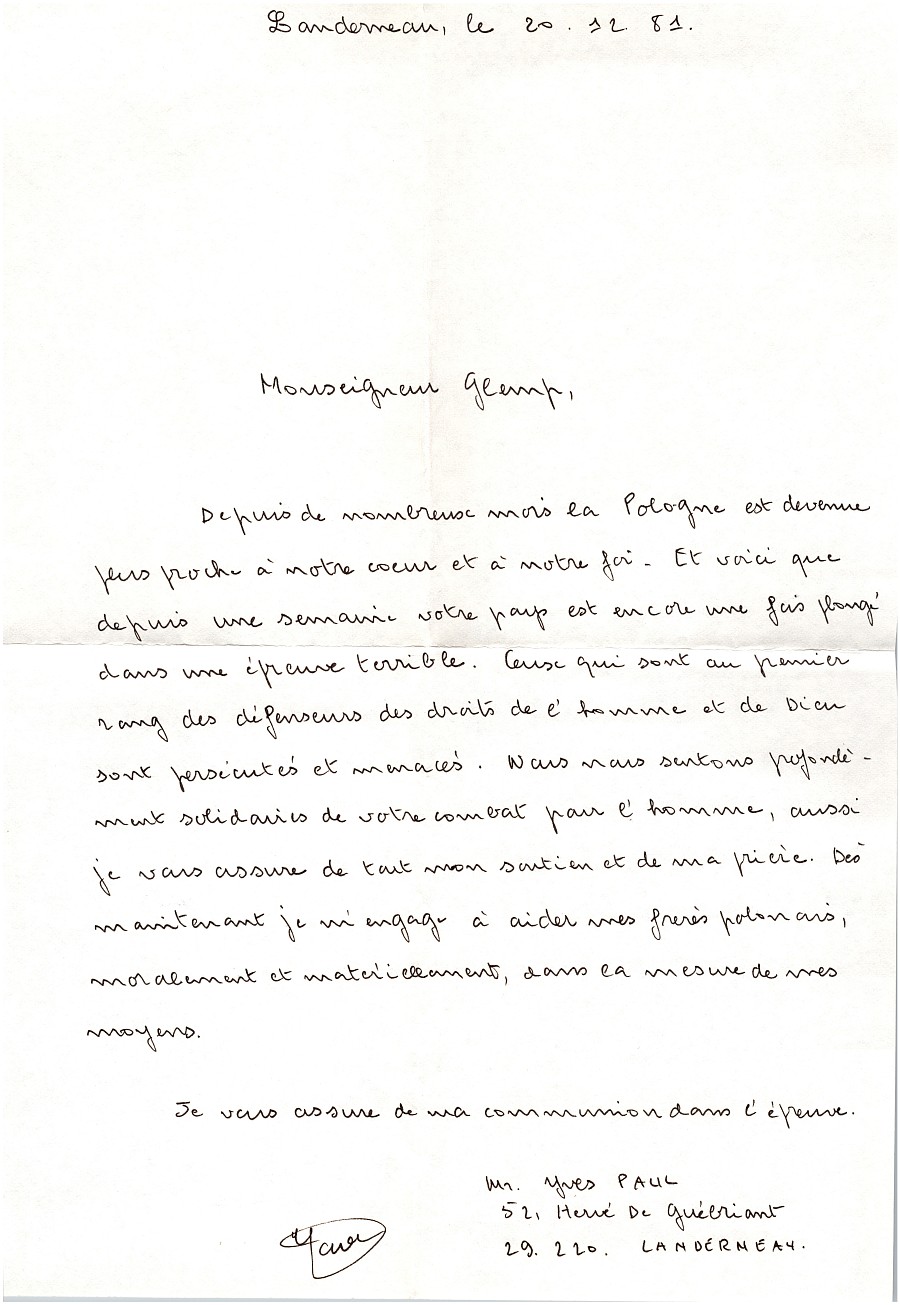 Landerneau, le 20.12.81.
Monseigneur Glemp,
Depuis de nombreux mois la Pologne est devenue
plus proche à notre coeur et à notre foi. Et voici que
depuis une semaine votre pays est encore une fois plongé
dans une épreuve terrible. Ceux qui sont au premier
rang des défenseurs des droits de l'homme et de Dieu
sont persécutés et menacés. Nous nous sentons profondé-
ment solidaires de votre combat pour l'homme, aussi
je vous assure de tout mon soutien et de ma prière. Dès
maintenant je m'engage à aider mes frères polonais,
moralement et matériellement, dans la mesure de mes
moyens.
Je vous assure de ma communion dans l'épreuve.
Mr. Yves PAUL
52, Hervé De Guébriant
29.220. LANDERNEAU.